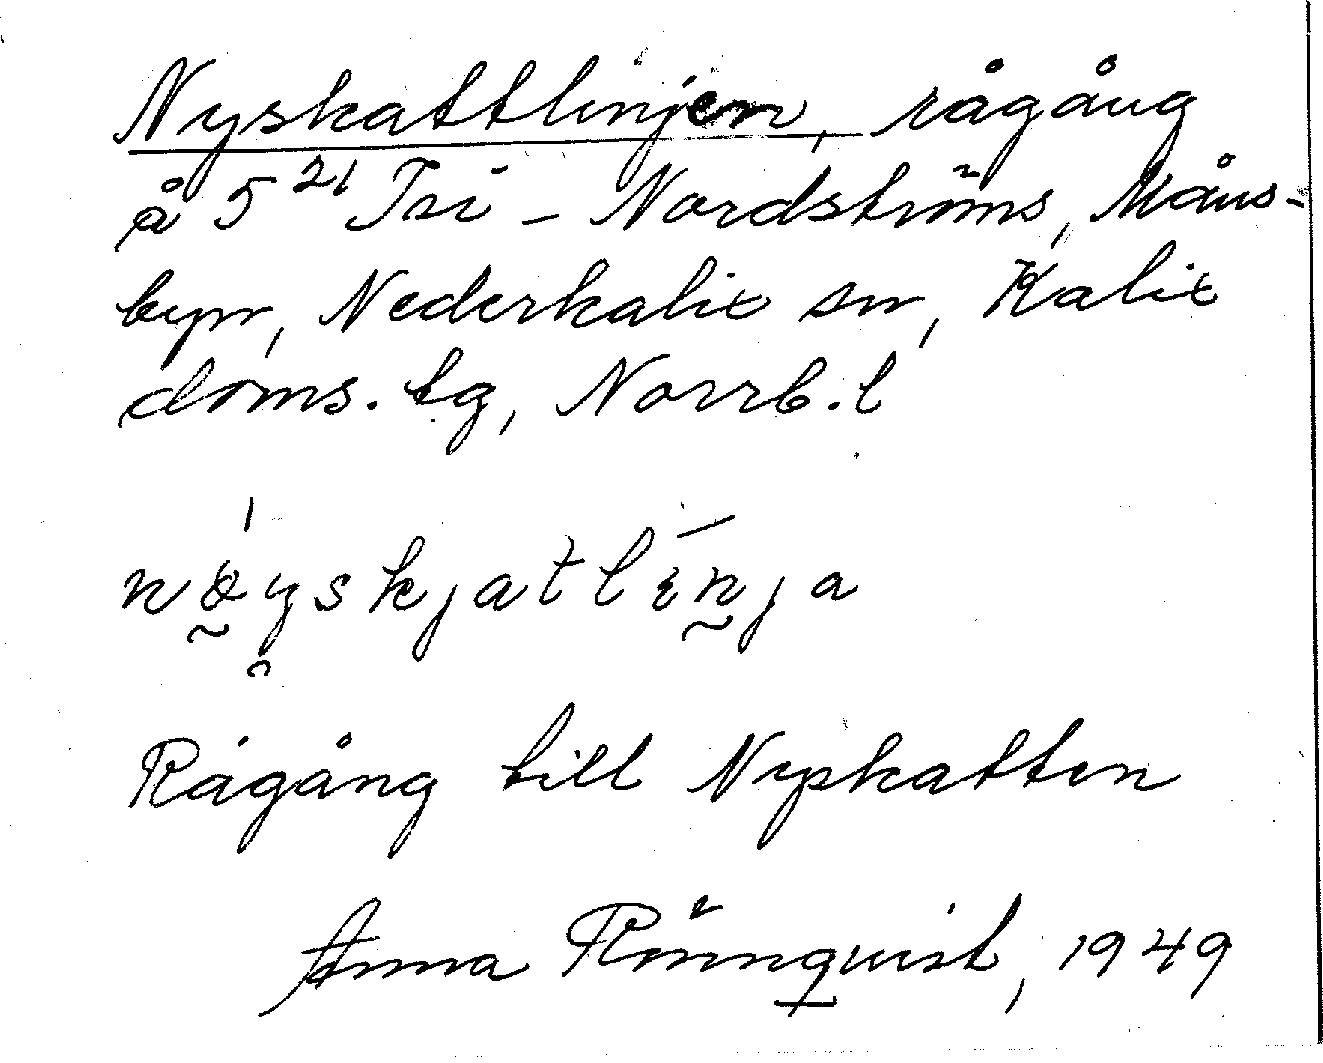 Nyskattlinjen, rågång
å 5²¹ Isi - Nordströms, Måns-
byn, Nederkalix sn, Kalix
doms. tg, Norrb. l
nøyskjatlinja
Rågång till Nyskatten
Anna Rönnquist, 1949